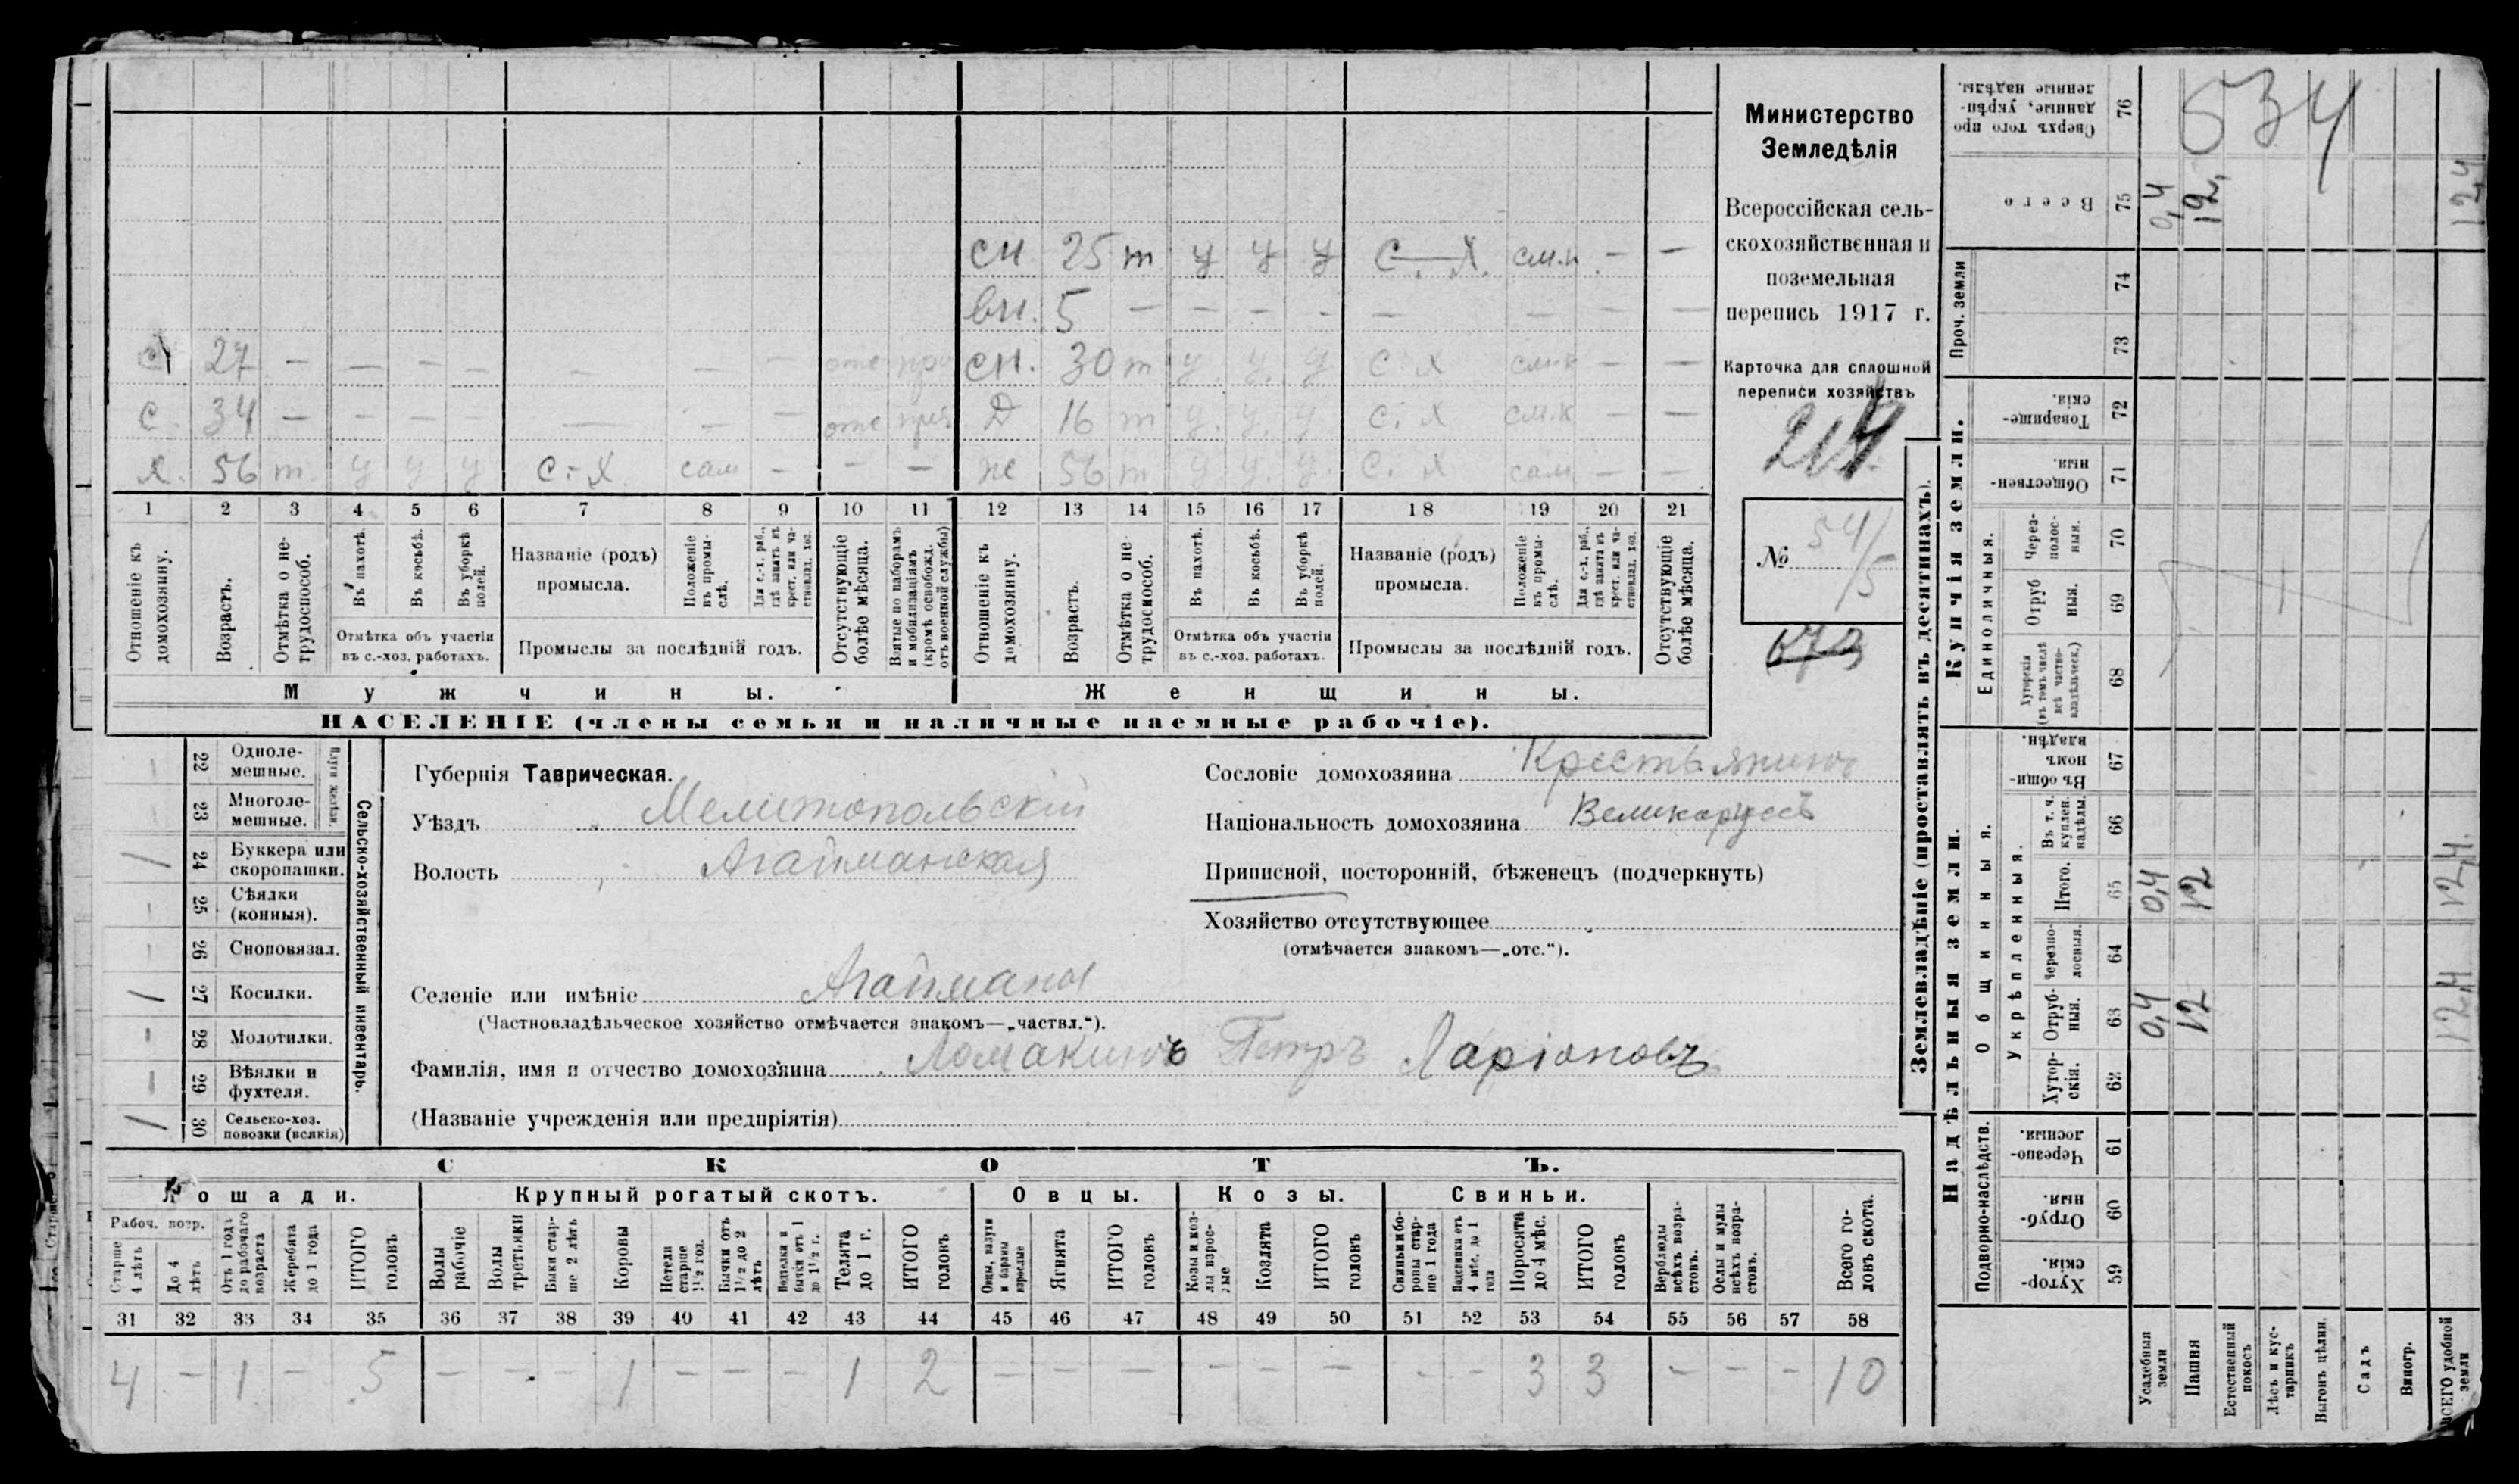 Министерство
Земледѣлія
Всероссійская сель-
скохозяйственная и
поземельная
перепись 1917 г.
Карточка для сплошной
переписи хозяйствъ
214
№ 54/5
673
534
сн 25 т у у у С. Х. см.к — —
вн. 5 — — — — — — — —
с 27 — — — — — — — отс
сн. 30 т у. у. у С Х см.к — —
с. 34 — — — — — — — отс
д 16 т у. у. у С. Х см.к — —
х. 56 т. у у у С.-Х. сам — — —
ж 56 т у у. у. С. Х сам — —
1 2 3 4 5 6 7 8 9 10 11 12 13 14 15 16 17 18 19 20 21
Отношеніе къ домохозяину.
Возрастъ.
Отмѣтка о не-трудоспособ.
Въ пахотѣ.
Въ косьбѣ.
Въ уборкѣ полей.
Отмѣтка объ участіи въ с.-хоз. работахъ.
Названіе (родъ) промысла.
Положеніе въ промы-слѣ.
Для с.-х. раб., гдѣ занятъ въ крест. или ча-стновлад. хоз.
Промыслы за послѣдній годъ.
Отсутствующіе болѣе мѣсяца.
Взятые по наборамъ и мобилизаціямъ (кромѣ освобожд. отъ военной службы)
Отношеніе къ домохозяину.
Возрастъ.
Отмѣтка о не трудоспособ.
Въ пахотѣ.
Въ косьбѣ.
Въ уборкѣ полей.
Отмѣтка объ участіи въ с.-хоз. работахъ.
Названіе (родъ) промысла.
Положеніе въ промы-слѣ.
Для с.-х. раб., гдѣ занята въ крест. или ча-стновлад. хоз.
Промыслы за послѣдній годъ.
Отсутствующіе болѣе мѣсяца.
Мужчины.
Женщины.
НАСЕЛЕНІЕ (члены семьи и наличные наемные рабочіе).
Сельско-хозяйственный инвентарь.
Плуги желѣзн.
— 22 Одноле-мешные.
23 Многоле-мешные.
/ 24 Буккера или скоропашки.
— 25 Сѣялки (конныя).
— 26 Сноповязал.
/ 27 Косилки.
— 28 Молотилки.
— 29 Вѣялки и фухтеля.
/ 30 Сельско-хоз. повозки (всякія)
Губернія Таврическая.
Уѣздъ Мелитопольскій
Волость Агайманская
Сословіе домохозяина Крестьянинъ
Національность домохозяина Великоруссъ
Приписной, посторонній, бѣженецъ (подчеркнуть)
Хозяйство отсутствующее
(отмѣчается знакомъ—„отс.“).
Селеніе или имѣніе Агайманы
(Частновладѣльческое хозяйство отмѣчается знакомъ—„частвл.“).
Фамилія, имя и отчество домохозяина Ломакинъ Петръ Ларіоновъ
(Названіе учрежденія или предпріятія)
СКОТЪ.
Лошади.
Крупный рогатый скотъ.
Овцы.
Козы.
Свиньи.
Рабоч. возр.
Старше 4 лѣтъ
До 4 лѣтъ
Отъ 1 года до рабочаго возраста
Жеребята до 1 года
ИТОГО головъ
Волы рабочіе
Волы третьяки
Быки стар-ше 2 лѣтъ
Коровы
Нетели старше 1½ год.
Бычки отъ 1½ до 2 лѣтъ
Телята до 1 г.
ИТОГО головъ
Овцы, валухи и бараны взрослые
Ягнята
ИТОГО головъ
Козы и коз-лы взрос-лые
Козлята
ИТОГО головъ
Свиньи и бо-ровы стар-ше 1 года
Подсвинки отъ 4 мѣс. до 1 года
Поросята до 4 мѣс.
ИТОГО головъ
Верблюды всѣхъ возра-стовъ.
Ослы и мулы всѣхъ возра-стовъ.
Всего го-ловъ скота.
31 32 33 34 35 36 37 38 39 40 41 42 43 44 45 46 47 48 49 50 51 52 53 54 55 56 57 58
4 — 1 — 5 — — — 1 — — — 1 2 — — — — — — — — 3 3 — — — 10
Землевладѣніе (проставлять въ десятинахъ).
Купчія земли.
Надѣльныя земли.
Сверхъ того про данные, укрѣп-ленные надѣлы. 76
Всего 75 0,4 12, 12,4
Проч. земли 74 73
Товарище-скія. 72
Обществен-ныя. 71
Единоличныя.
Через-полос-ныя. 70
Отруб ныя. 69
Хуторскія (въ томъ числѣ всѣ частно-владѣльческ.) 68
Общинныя.
Укрѣпленныя.
Въ общин номъ владѣн. 67
Въ т. ч. куплен. надѣлы. 66
Итого. 65 0,4 12 12,4.
Черезпо-лосныя. 64
Отруб-ныя. 63 0,4 12 12,4
Хутор-скія. 62
Подворно-наслѣдств.
Черезпо-лосныя. 61
Отруб-ныя. 60
Хутор-скія. 59
Усадебныя земли
Пашня
Естественный покосъ
Лѣсъ и кус-тарникъ
Выгонъ цѣлин.
Садъ
Виногр.
ВСЕГО удобной земли